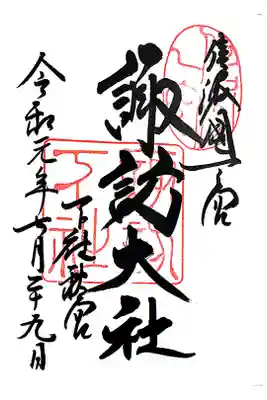 信濃國一之宮
諏訪大社
下社秋宮
令和元年七月二十九日